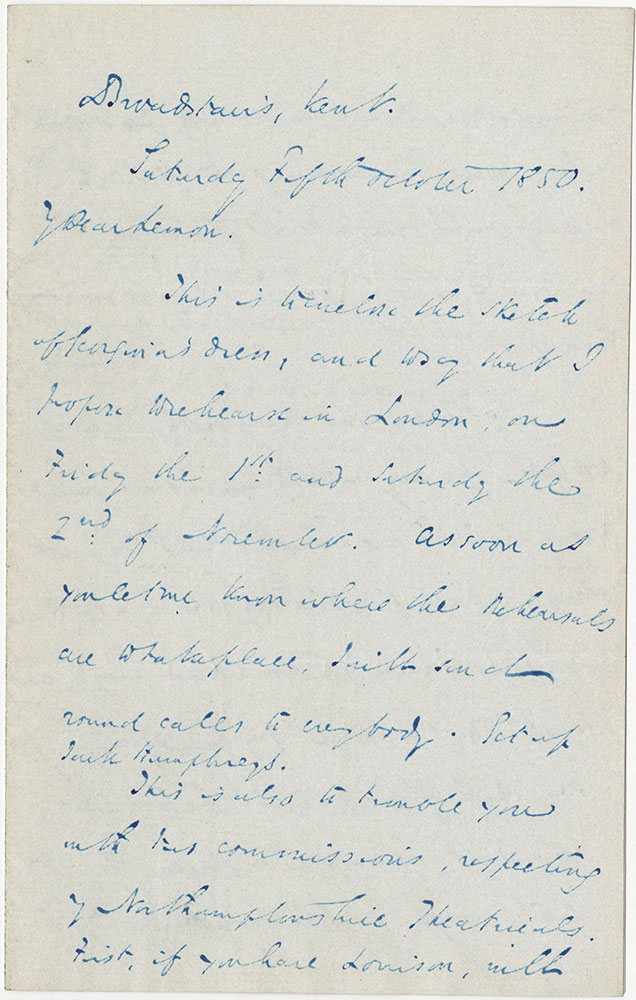 Broadstairs, Kent.
Saturday Fifth October 1850.
My Dear Lemon.
This is to enclose the sketch
of Georgina's dress, and to say that I
propose to rehearse in London, on
Friday the 1st. and Saturday the
2nd. of November. As soon as
you let me know where the Rehearsals
are to take place, I will send
round calls to everybody. Get up
Jack Humphreys.
This is also to trouble you
with two commissions, respecting
my Northamptonshire Theatricals.
First, if you have Louison, will